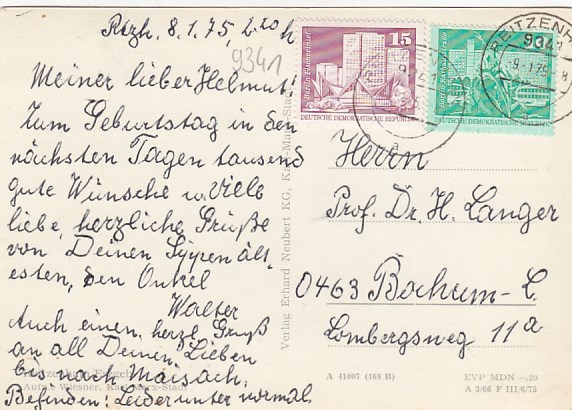 Rtzh. 8.1.75, 2.20 h
9341
Meiner lieber Helmut!
Zum Geburtstag in den
nächsten Tagen tausend
gute Wünsche u. viele
liebe, herzliche Grüße
von Deinen
esten, den Onkel
Walter
Auch einen herzl. Gruß
an all Deinen Lieben
bis nach Maisach.
Befinden: Leider unter normal.
Wiesner, Karl-Marx-Stadt
Verlag Erhard Neubert KG, Karl-Marx-Stadt
15
DEUTSCHE DEMOKRATISCHE REPUBLIK
DEUTSCHE DEMOKRATISCHE REPUBLIK
REITZENH
9341
-9-1.75
a
Herrn
Prof. Dr. H. Langer
0463 Bochum-L.
Lombergsweg 11a
A 41007 (168 B)
EVP MDN -.20
A 3/66 F III/6/73